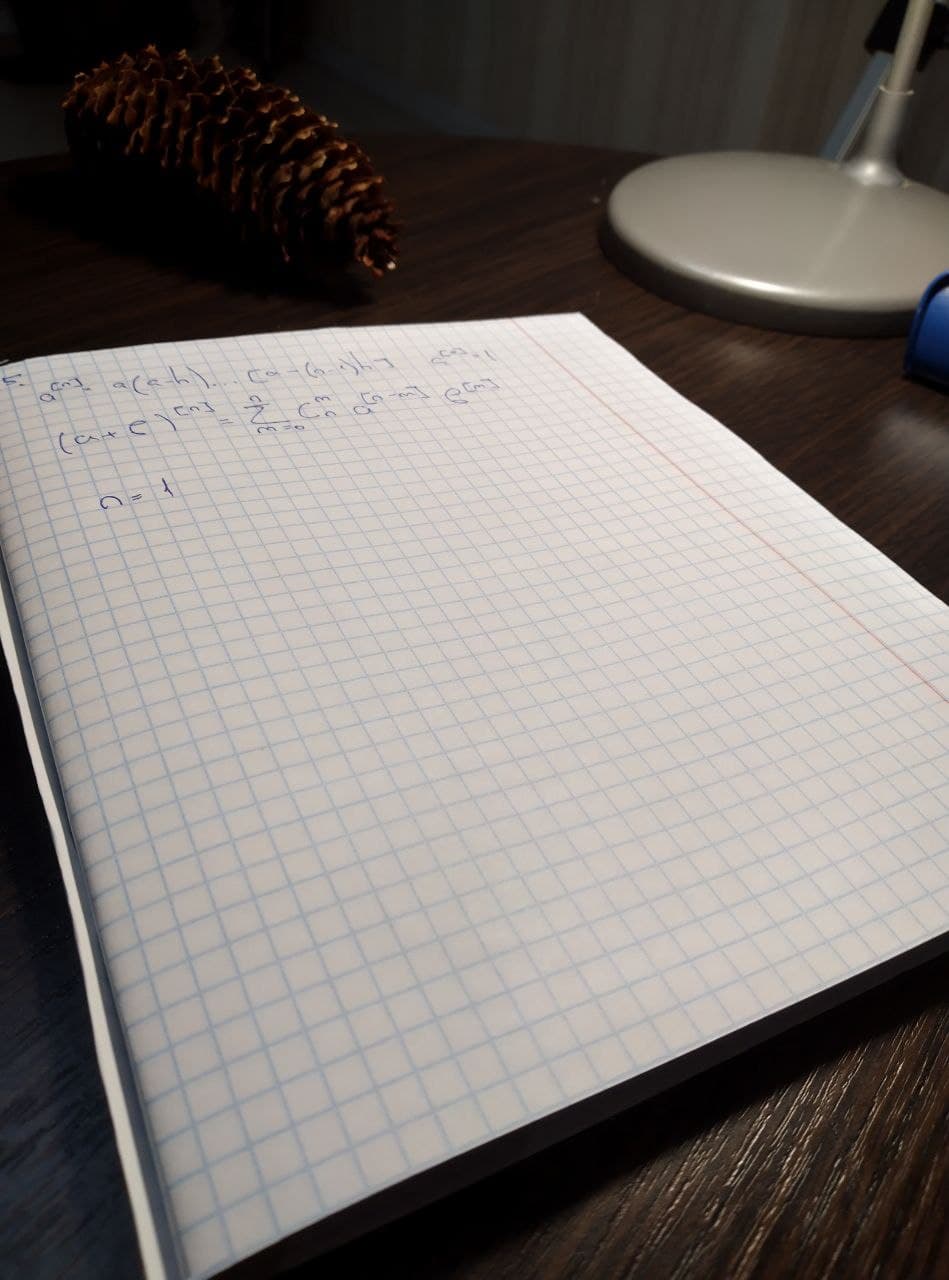 5. a^[n] = a(a-h)...[a-(n-1)h] a^[0]=1
(a+b)^[n] = Σ_{m=0}^{n} C_n^m a^[n-m] b^[m]
n = 1